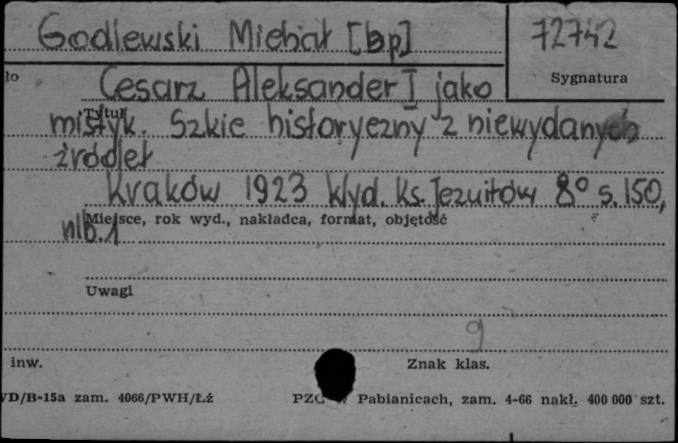 Godlewski Michał [bp]
72742
Sygnatura
ło
Cesarz Aleksander I jako
Tytuł
mistyk. Szkic historyczny z niewydanych
źródeł
Kraków 1923 Wyd. Ks. Jezuitów 8° s. 150,
Miejsce, rok wyd., nakładca, format, objętość
nlb. 1
Uwagi
g
inw.
Znak klas.
VD/B-15a zam. 4066/PWH/Łź
PZG w Pabianicach, zam. 4-66 nakł. 400 000 szt.